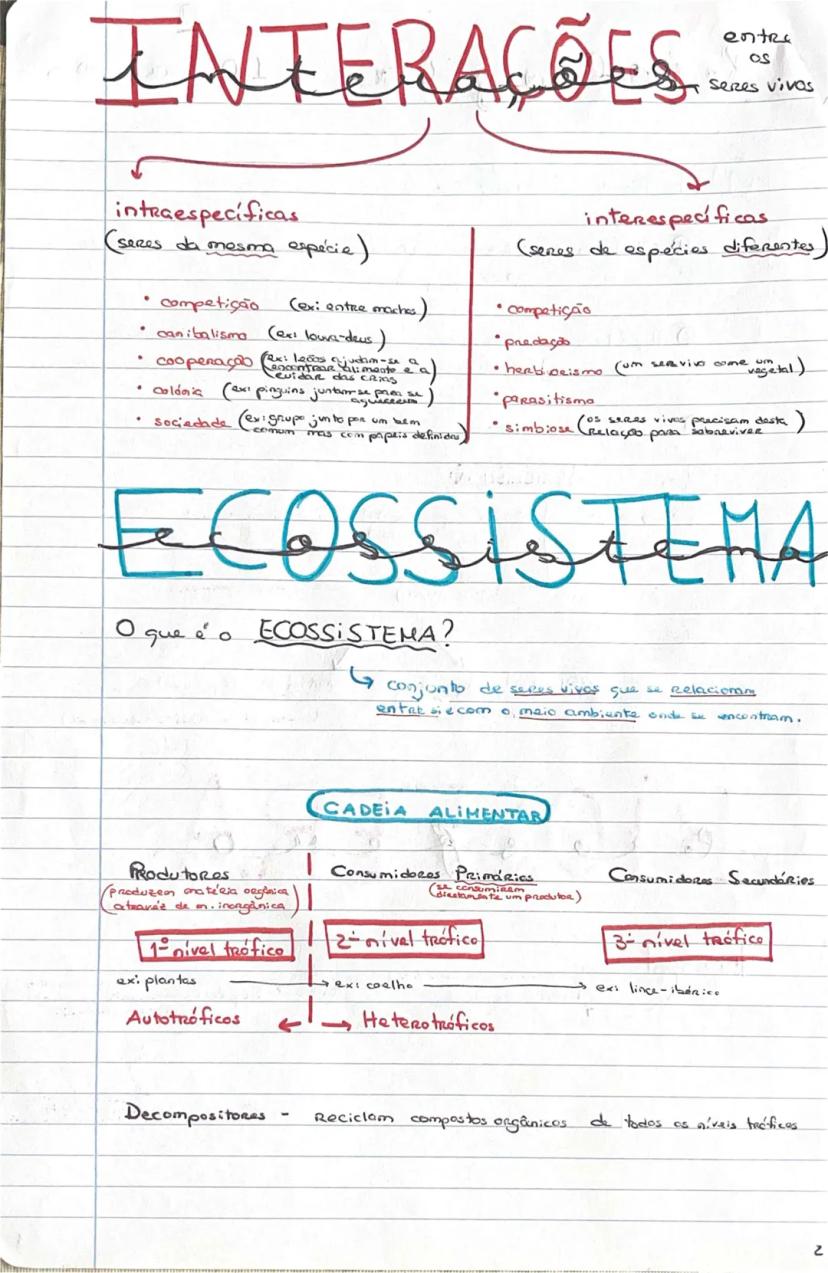 INTERAÇÕES entre os seres vivos
interações
intraespecíficas
(seres da mesma espécie)
• competição (ex: entre machos)
• canibalismo (ex: louva-deus)
• cooperação (ex: leões ajudam-se a encontrar alimento e a cuidar das crias)
• colónia (ex: pinguins juntam-se para se aquecerem)
• sociedade (ex: grupo junto por um bem comum mas com papéis definidos)
interespecíficas
(seres de espécies diferentes)
• competição
• predação
• herbivorismo (um ser vivo come um vegetal)
• parasitismo
• simbiose (os seres vivos precisam desta relação para sobreviver)
ECOSSISTEMA
ecossistema
O que é o ECOSSISTEMA?
↳ conjunto de seres vivos que se relacionam
entre si e com o meio ambiente onde se encontram.
CADEIA ALIMENTAR
Produtores
(produzem matéria orgânica
através de m. inorgânica)
1º nível trófico
ex: plantas
Consumidores Primários
(se consumirem
diretamente um produtor)
2º nível trófico
→ ex: coelho
Consumidores Secundários
3º nível trófico
→ ex: lince-ibérico
Autotróficos ← → Heterotróficos
Decompositores - Reciclam compostos orgânicos de todos os níveis tróficos
2